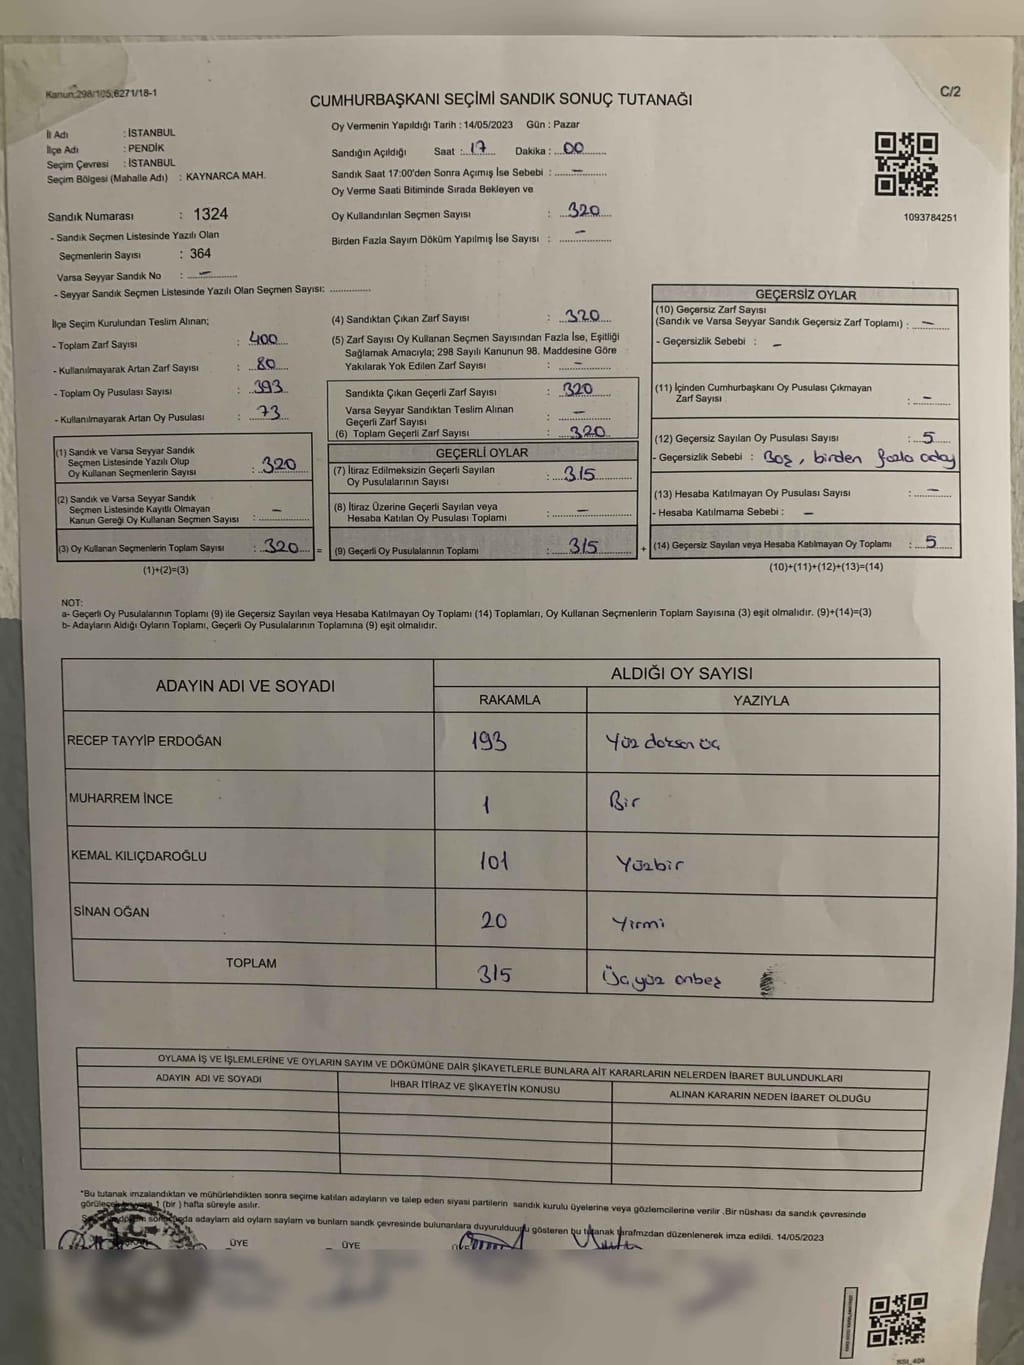 Kanun:298/105;6271/18-1
C/2
CUMHURBAŞKANI SEÇİMİ SANDIK SONUÇ TUTANAĞI
İl Adı : İSTANBUL
İlçe Adı : PENDİK
Seçim Çevresi : İSTANBUL
Seçim Bölgesi (Mahalle Adı) : KAYNARCA MAH.
Sandık Numarası : 1324
- Sandık Seçmen Listesinde Yazılı Olan
Seçmenlerin Sayısı : 364
Varsa Seyyar Sandık No : –
- Seyyar Sandık Seçmen Listesinde Yazılı Olan Seçmen Sayısı: ..............
Oy Vermenin Yapıldığı Tarih : 14/05/2023 Gün : Pazar
Sandığın Açıldığı Saat : 17 Dakika : 00
Sandık Saat 17:00'den Sonra Açımış İse Sebebi : –
Oy Verme Saati Bitiminde Sırada Bekleyen ve
Oy Kullandırılan Seçmen Sayısı : 320
Birden Fazla Sayım Döküm Yapılmış İse Sayısı : –
1093784251
İlçe Seçim Kurulundan Teslim Alınan;
- Toplam Zarf Sayısı : 400
- Kullanılmayarak Artan Zarf Sayısı : 80
- Toplam Oy Pusulası Sayısı : 393
- Kullanılmayarak Artan Oy Pusulası : 73
(1) Sandık ve Varsa Seyyar Sandık
Seçmen Listesinde Yazılı Olup
Oy Kullanan Seçmenlerin Sayısı : 320
(2) Sandık ve Varsa Seyyar Sandık
Seçmen Listesinde Kayıtlı Olmayan
Kanun Gereği Oy Kullanan Seçmen Sayısı : –
(3) Oy Kullanan Seçmenlerin Toplam Sayısı : 320 =
(1)+(2)=(3)
(4) Sandıktan Çıkan Zarf Sayısı : 320
(5) Zarf Sayısı Oy Kullanan Seçmen Sayısından Fazla İse, Eşitliği
Sağlamak Amacıyla; 298 Sayılı Kanunun 98. Maddesine Göre
Yakılarak Yok Edilen Zarf Sayısı : –
Sandıkta Çıkan Geçerli Zarf Sayısı : 320
Varsa Seyyar Sandıktan Teslim Alınan
Geçerli Zarf Sayısı : –
(6) Toplam Geçerli Zarf Sayısı : 320
GEÇERLİ OYLAR
(7) İtiraz Edilmeksizin Geçerli Sayılan
Oy Pusulalarının Sayısı : 315
(8) İtiraz Üzerine Geçerli Sayılan veya
Hesaba Katılan Oy Pusulası Toplamı : –
(9) Geçerli Oy Pusulalarının Toplamı : 315 +
GEÇERSİZ OYLAR
(10) Geçersiz Zarf Sayısı
(Sandık ve Varsa Seyyar Sandık Geçersiz Zarf Toplamı) : –
- Geçersizlik Sebebi : –
(11) İçinden Cumhurbaşkanı Oy Pusulası Çıkmayan
Zarf Sayısı : –
(12) Geçersiz Sayılan Oy Pusulası Sayısı : 5
- Geçersizlik Sebebi : Boş, birden fazla aday
(13) Hesaba Katılmayan Oy Pusulası Sayısı : –
- Hesaba Katılmama Sebebi : –
(14) Geçersiz Sayılan veya Hesaba Katılmayan Oy Toplamı : 5
(10)+(11)+(12)+(13)=(14)
NOT:
a- Geçerli Oy Pusulalarının Toplamı (9) ile Geçersiz Sayılan veya Hesaba Katılmayan Oy Toplamı (14) Toplamları, Oy Kullanan Seçmenlerin Toplam Sayısına (3) eşit olmalıdır. (9)+(14)=(3)
b- Adayların Aldığı Oyların Toplamı, Geçerli Oy Pusulalarının Toplamına (9) eşit olmalıdır.
ADAYIN ADI VE SOYADI
ALDIĞI OY SAYISI
RAKAMLA YAZIYLA
RECEP TAYYİP ERDOĞAN 193 Yüz doksan üç
MUHARREM İNCE 1 Bir
KEMAL KILIÇDAROĞLU 101 Yüzbir
SİNAN OĞAN 20 Yirmi
TOPLAM 315 Üçyüz onbeş
OYLAMA İŞ VE İŞLEMLERİNE VE OYLARIN SAYIM VE DÖKÜMÜNE DAİR ŞİKAYETLERLE BUNLARA AİT KARARLARIN NELERDEN İBARET BULUNDUKLARI
ADAYIN ADI VE SOYADI İHBAR İTİRAZ VE ŞİKAYETİN KONUSU ALINAN KARARIN NEDEN İBARET OLDUĞU
"Bu tutanak imzalandıktan ve mühürlehdikten sonra seçime katılan adayların ve talep eden siyasi partilerin sandık kurulu üyelerine veya gözlemcilerine verilir .Bir nüshası da sandık çevresinde
1 (bir ) hafta süreyle asılır.
adaylarn ald oylarn saylarn ve bunlarn sandk çevresinde bulunanlara duyurulduunu gösteren bu tutanak tarafmzdan düzenlenerek imza edildi. 14/05/2023
ÜYE ÜYE